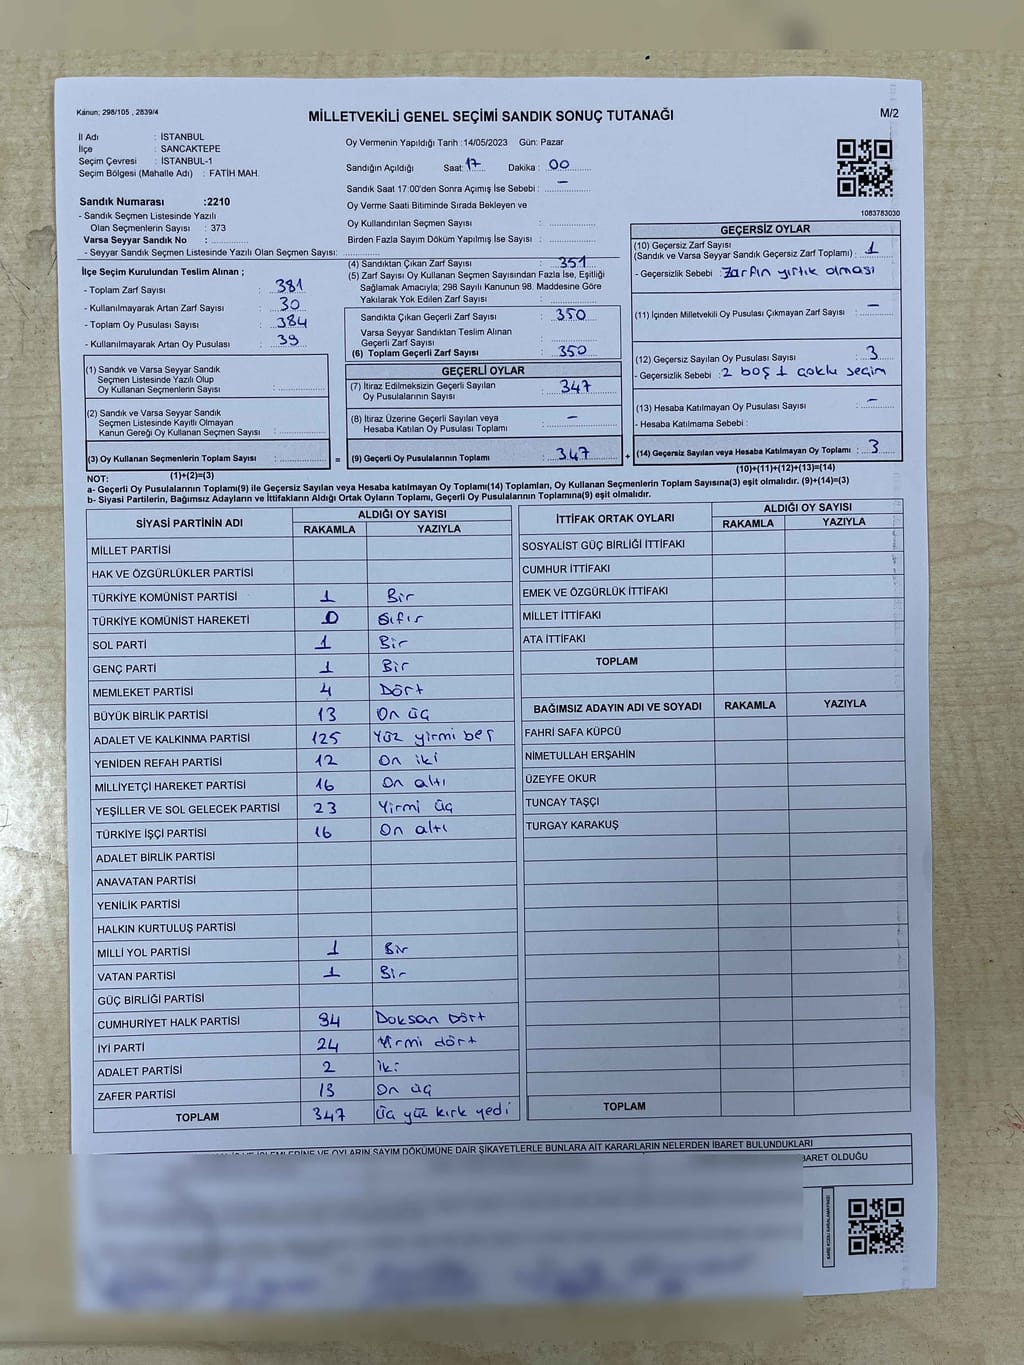 Kanun; 298/105 , 2839/4
MİLLETVEKİLİ GENEL SEÇİMİ SANDIK SONUÇ TUTANAĞI
M/2
İl Adı : İSTANBUL
İlçe : SANCAKTEPE
Seçim Çevresi : İSTANBUL-1
Seçim Bölgesi (Mahalle Adı) : FATİH MAH.
Oy Vermenin Yapıldığı Tarih :14/05/2023 Gün: Pazar
Sandığın Açıldığı Saat: 17 Dakika : 00
Sandık Saat 17:00'den Sonra Açımış İse Sebebi : –
Oy Verme Saati Bitiminde Sırada Bekleyen ve
Oy Kullandırılan Seçmen Sayısı :
Birden Fazla Sayım Döküm Yapılmış İse Sayısı :
1083783030
Sandık Numarası :2210
- Sandık Seçmen Listesinde Yazılı
Olan Seçmenlerin Sayısı : 373
Varsa Seyyar Sandık No :
- Seyyar Sandık Seçmen Listesinde Yazılı Olan Seçmen Sayısı:
İlçe Seçim Kurulundan Teslim Alınan ;
- Toplam Zarf Sayısı : 381
- Kullanılmayarak Artan Zarf Sayısı : 30
- Toplam Oy Pusulası Sayısı : 384
- Kullanılmayarak Artan Oy Pusulası :
(1) Sandık ve Varsa Seyyar Sandık
Seçmen Listesinde Yazılı Olup
Oy Kullanan Seçmenlerin Sayısı :
(2) Sandık ve Varsa Seyyar Sandık
Seçmen Listesinde Kayıtlı Olmayan
Kanun Gereği Oy Kullanan Seçmen Sayısı :
(3) Oy Kullanan Seçmenlerin Toplam Sayısı :
(1)+(2)=(3)
(4) Sandıktan Çıkan Zarf Sayısı : 351
(5) Zarf Sayısı Oy Kullanan Seçmen Sayısından Fazla İse, Eşitliği
Sağlamak Amacıyla; 298 Sayılı Kanunun 98. Maddesine Göre
Yakılarak Yok Edilen Zarf Sayısı :
Sandıkta Çıkan Geçerli Zarf Sayısı : 350
Varsa Seyyar Sandıktan Teslim Alınan
Geçerli Zarf Sayısı :
(6) Toplam Geçerli Zarf Sayısı : 350
GEÇERLİ OYLAR
(7) İtiraz Edilmeksizin Geçerli Sayılan
Oy Pusulalarının Sayısı : 347
(8) İtiraz Üzerine Geçerli Sayılan veya
Hesaba Katılan Oy Pusulası Toplamı : –
= (9) Geçerli Oy Pusulalarının Toplamı : 347 +
GEÇERSİZ OYLAR
(10) Geçersiz Zarf Sayısı
(Sandık ve Varsa Seyyar Sandık Geçersiz Zarf Toplamı) : 1
- Geçersizlik Sebebi : Zarfın yırtık olması
(11) İçinden Milletvekili Oy Pusulası Çıkmayan Zarf Sayısı : –
(12) Geçersiz Sayılan Oy Pusulası Sayısı : 3
- Geçersizlik Sebebi : 2 boş 1 çoklu seçim
(13) Hesaba Katılmayan Oy Pusulası Sayısı : –
- Hesaba Katılmama Sebebi :
(14) Geçersiz Sayılan veya Hesaba Katılmayan Oy Pusulası Toplamı : 3
(10)+(11)+(12)+(13)=(14)
NOT:
a- Geçerli Oy Pusulalarının Toplamı(9) ile Geçersiz Sayılan veya Hesaba katılmayan Oy Toplamı(14) Toplamları, Oy Kullanan Seçmenlerin Toplam Sayısına(3) eşit olmalıdır. (9)+(14)=(3)
b- Siyasi Partilerin, Bağımsız Adayların ve İttifakların Aldığı Ortak Oyların Toplamı, Geçerli Oy Pusulalarının Toplamına(9) eşit olmalıdır.
SİYASİ PARTİNİN ADI ALDIĞI OY SAYISI
RAKAMLA YAZIYLA
MİLLET PARTİSİ
HAK VE ÖZGÜRLÜKLER PARTİSİ
TÜRKİYE KOMÜNİST PARTİSİ 1 Bir
TÜRKİYE KOMÜNİST HAREKETİ 0 Sıfır
SOL PARTİ 1 Bir
GENÇ PARTİ 1 Bir
MEMLEKET PARTİSİ 4 Dört
BÜYÜK BİRLİK PARTİSİ 13 On üç
ADALET VE KALKINMA PARTİSİ 125 Yüz yirmi beş
YENİDEN REFAH PARTİSİ 12 On iki
MİLLİYETÇİ HAREKET PARTİSİ 16 On altı
YEŞİLLER VE SOL GELECEK PARTİSİ 23 Yirmi üç
TÜRKİYE İŞÇİ PARTİSİ 16 On altı
ADALET BİRLİK PARTİSİ
ANAVATAN PARTİSİ
YENİLİK PARTİSİ
HALKIN KURTULUŞ PARTİSİ
MİLLİ YOL PARTİSİ 1 Bir
VATAN PARTİSİ 1 Bir
GÜÇ BİRLİĞİ PARTİSİ
CUMHURİYET HALK PARTİSİ 94 Doksan Dört
İYİ PARTİ 24 Yirmi dört
ADALET PARTİSİ 2 İki
ZAFER PARTİSİ 13 On üç
TOPLAM 347 üç yüz kırk yedi
İTTİFAK ORTAK OYLARI ALDIĞI OY SAYISI
RAKAMLA YAZIYLA
SOSYALİST GÜÇ BİRLİĞİ İTTİFAKI
CUMHUR İTTİFAKI
EMEK VE ÖZGÜRLÜK İTTİFAKI
MİLLET İTTİFAKI
ATA İTTİFAKI
TOPLAM
BAĞIMSIZ ADAYIN ADI VE SOYADI RAKAMLA YAZIYLA
FAHRİ SAFA KÜPCÜ
NİMETULLAH ERŞAHİN
ÜZEYFE OKUR
TUNCAY TAŞÇI
TURGAY KARAKUŞ
TOPLAM
VE OYLARIN SAYIM DÖKÜMÜNE DAİR ŞİKAYETLERLE BUNLARA AİT KARARLARIN NELERDEN İBARET BULUNDUKLARI
BARET OLDUĞU